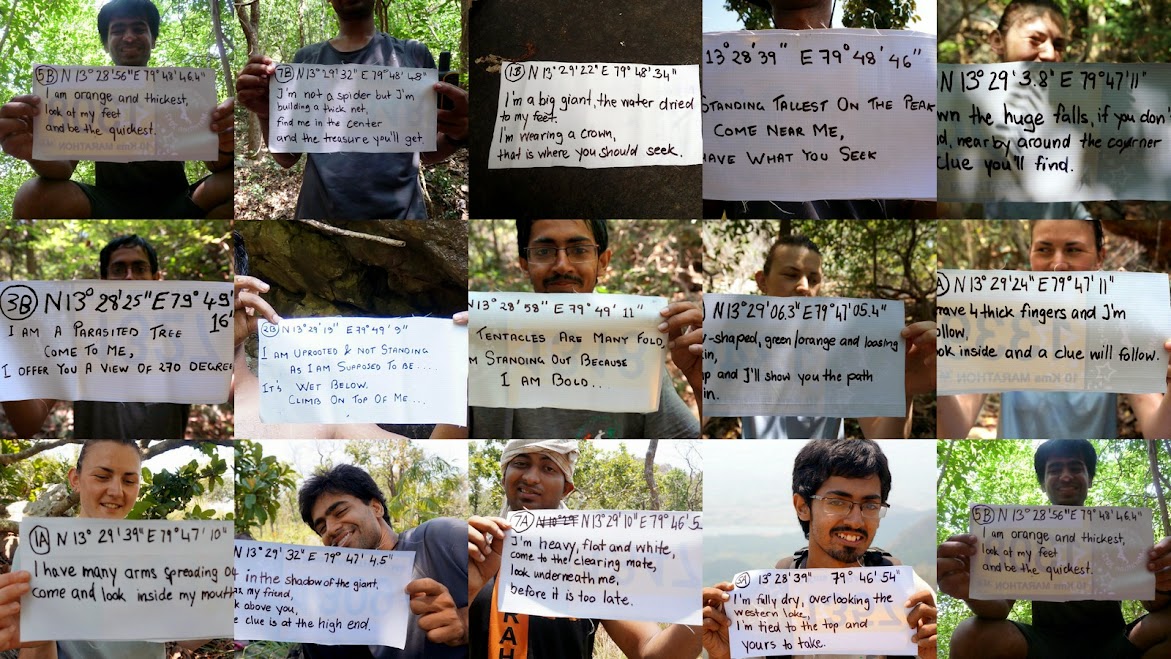 5B N 13° 28' 56" E 79° 48' 46.4"
I am orange and thickest,
look at my feet
and be the quickest.
7B N 13° 29' 32" E 79° 48' 48"
I'm not a spider but I'm
building a thick net,
find me in the center
and the treasure you'll get
1B N 13° 29' 22" E 79° 48' 34"
I'm a big giant, the water dried
to my feet.
I'm wearing a crown,
that is where you should seek.
13° 28' 39" E 79° 48' 46"
STANDING TALLEST ON THE PEAK
COME NEAR ME,
HAVE WHAT YOU SEEK
N 13° 29' 3.8" E 79° 47' 11"
the huge falls, if you don'
nearby around the cournner
clue you'll find.
3B N 13° 28' 25" E 79° 49'
16"
I AM A PARASITED TREE
COME TO ME,
I OFFER YOU A VIEW OF 270 DEGREE
2B N 13° 29' 19" E 79° 49' 9"
I AM UPROOTED & NOT STANDING
AS I AM SUPPOSED TO BE....
IT'S WET BELOW.
CLIMB ON TOP OF ME...
N 13° 28' 58" E 79° 49' 11"
TENTACLES ARE MANY FOLD,
M STANDING OUT BECAUSE
I AM BOLD...
N 13° 29' 06.3" E 79° 47' 05.4"
-shaped, green/orange and loosing
in,
p and I'll show you the path
in.
A) N 13° 29' 24" E 79° 47' 11"
have 4 thick fingers and I'm
ollow,
ook inside and a clue will follow.
10 Kms MARATHON
1A N 13° 29' 39" E 79° 47' 10"
I have many arms spreading ou
come and look inside my mouth
N 13° 29' 32" E 79° 47' 4.5"
in the shadow of the giant,
my friend,
k above you,
e clue is at the high end.
7A N 13° 29' 10" E 79° 46' 5
I'm heavy, flat and white,
come to the clearing mate,
look underneath me,
before it is too late.
13° 28' 39" 79° 46' 54"
I'm fully dry, overlooking the
western lake,
I'm tied to the top and
yours to take.
5B N 13° 28' 56" E 79° 48' 46.4"
I am orange and thickest,
look at my feet
and be the quickest.